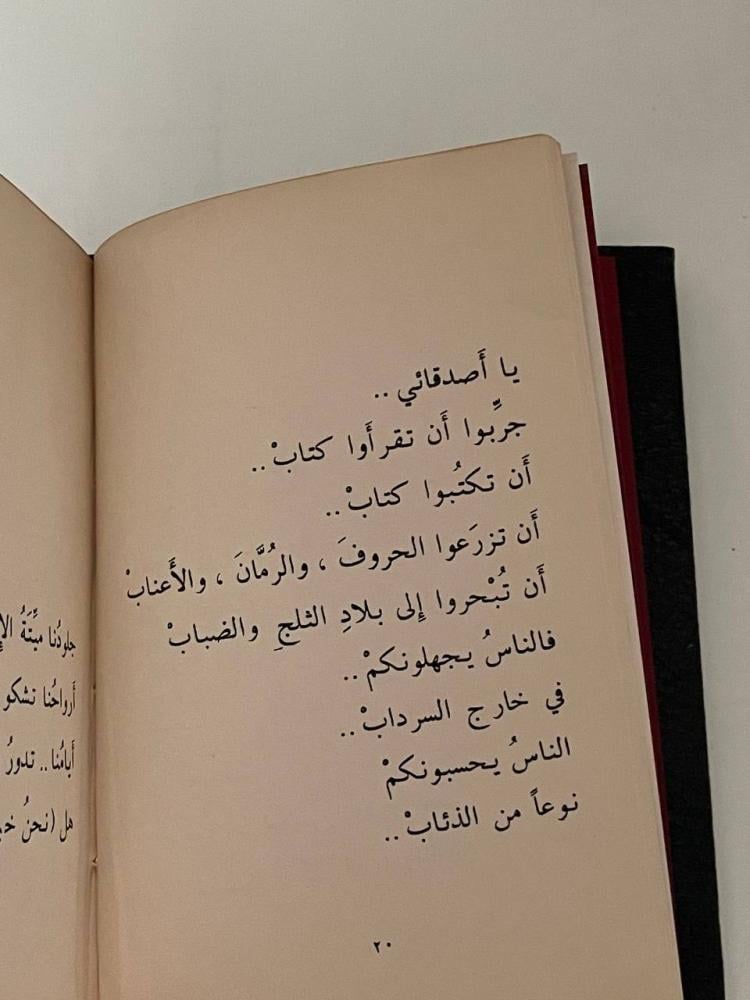 يا أَصدقائي ..
جرِّبوا أَن تقرأَوا كتابْ ..
أَن تكتُبوا كتابْ ..
أَن تزرَعوا الحروفَ ، والرُمَّانَ ، والأَعنابْ
أَن تُبْحروا إِلى بلادِ الثلجِ والضبابْ
فالناسُ يجهلونكمْ ..
في خارج السردابْ ..
الناسُ يحسبونكمْ
نوعاً من الذئابْ ..
٢٠
جلودُنا ميِّتَةُ
أرواحُنا تشكو
أيامُنا .. تدورُ
هل (نحنُ